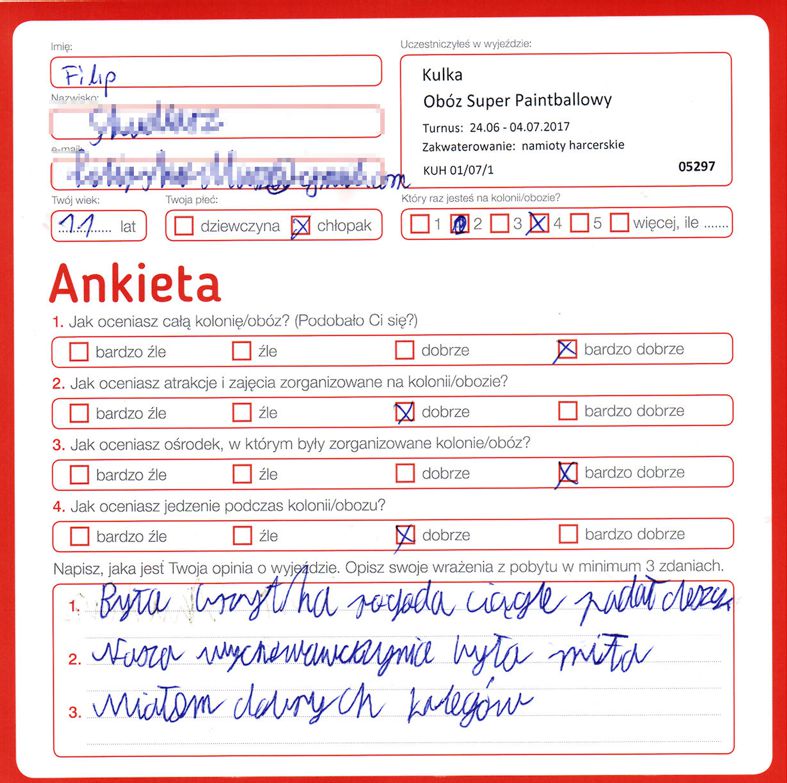 Imię:
Filip
Nazwisko:
e-mail:
Uczestniczyłeś w wyjeździe:
Kulka
Obóz Super Paintballowy
Turnus: 24.06 - 04.07.2017
Zakwaterowanie: namioty harcerskie
KUH 01/07/1 05297
Twój wiek:
11 lat
Twoja płeć:
dziewczyna chłopak
Który raz jesteś na kolonii/obozie?
1 2 3 4 5 więcej, ile .......
Ankieta
1. Jak oceniasz całą kolonię/obóz? (Podobało Ci się?)
bardzo źle źle dobrze bardzo dobrze
2. Jak oceniasz atrakcje i zajęcia zorganizowane na kolonii/obozie?
bardzo źle źle dobrze bardzo dobrze
3. Jak oceniasz ośrodek, w którym były zorganizowane kolonie/obóz?
bardzo źle źle dobrze bardzo dobrze
4. Jak oceniasz jedzenie podczas kolonii/obozu?
bardzo źle źle dobrze bardzo dobrze
Napisz, jaka jest Twoja opinia o wyjeździe. Opisz swoje wrażenia z pobytu w minimum 3 zdaniach.
1. Była ciągle padał
2. Nasza wychowawczynia była miła
3. Miałom kolegów